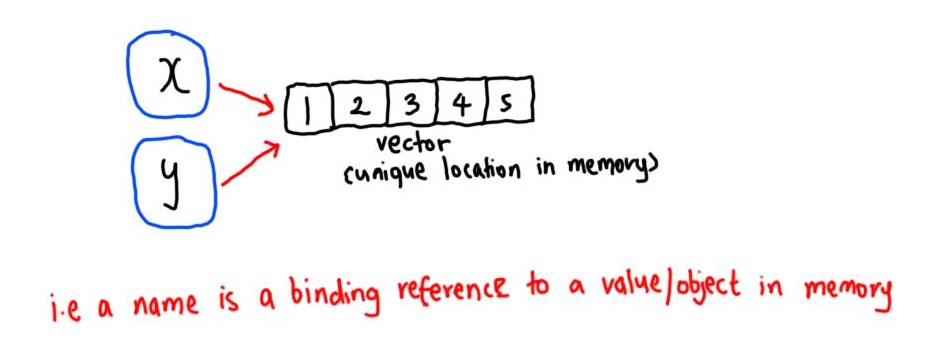 x
1 2 3 4 5
y
vector
(unique location in memory)
i.e a name is a binding reference to a value/object in memory